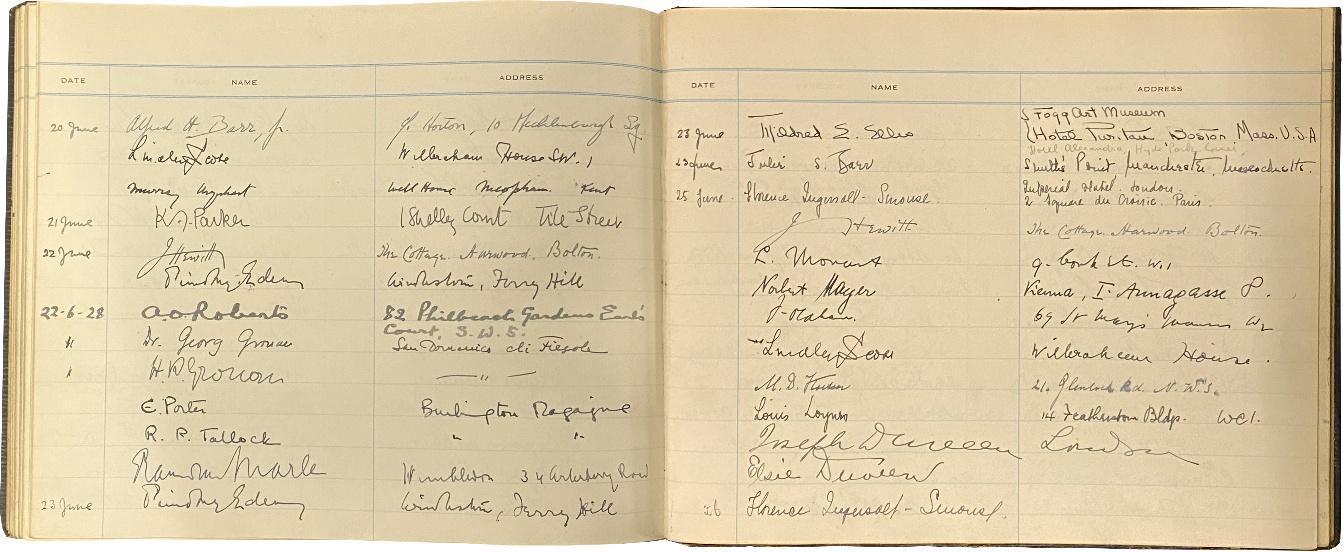 DATE NAME ADDRESS
20 June Alfred H. Barr, Jr. c/o Horton, 10 Mecklenburgh Sq.
Lindley Scott Wilbraham House SW. 1
Murray Urquhart Well House Meopham Kent
21 June K. T. Parker 1 Shelley Court Tite Street
22 June J Hewitt The Cottage. Harwood. Bolton.
Timothy Eden Windlestone, Ferry Hill
22-6-28 A.O. Roberts 82 Philbeach Gardens Earl's
Court, S.W.5.
" Dr. Georg Gronau San Domenico di Fiesole
" H.D. Gronau — " —
E. Porter Burlington Magazine
R. R. Tatlock " "
Raimond van Marle Wimbledon 34 Arterberry Road
23 June Timothy Eden Windlestone, Ferry Hill
DATE NAME ADDRESS
Fogg Art Museum
23 June Mildred E. Hotel Puritan, Boston Mass. U.S.A
Hotel Alexandra, Hyde Park Corner
23 June S. Barr Smith's Point Manchester, Massachusetts.
25 June Florence Ingersoll-Smouse. Imperial Hotel. London.
2 Square du Croisic. Paris.
J Hewitt The Cottage. Harwood Bolton.
9. Cork St. W.1
Norbert Mayer Vienna, I. Annagasse 8.
69 St Mary's
Lindley Scott Wilbraham House.
M. D. 21. Glenloch Rd. N.W.3.
Louis 14 Featherstone Bldps. WC1.
Joseph Duveen London
Elsie Duveen
26 Florence Ingersoll-Smouse.